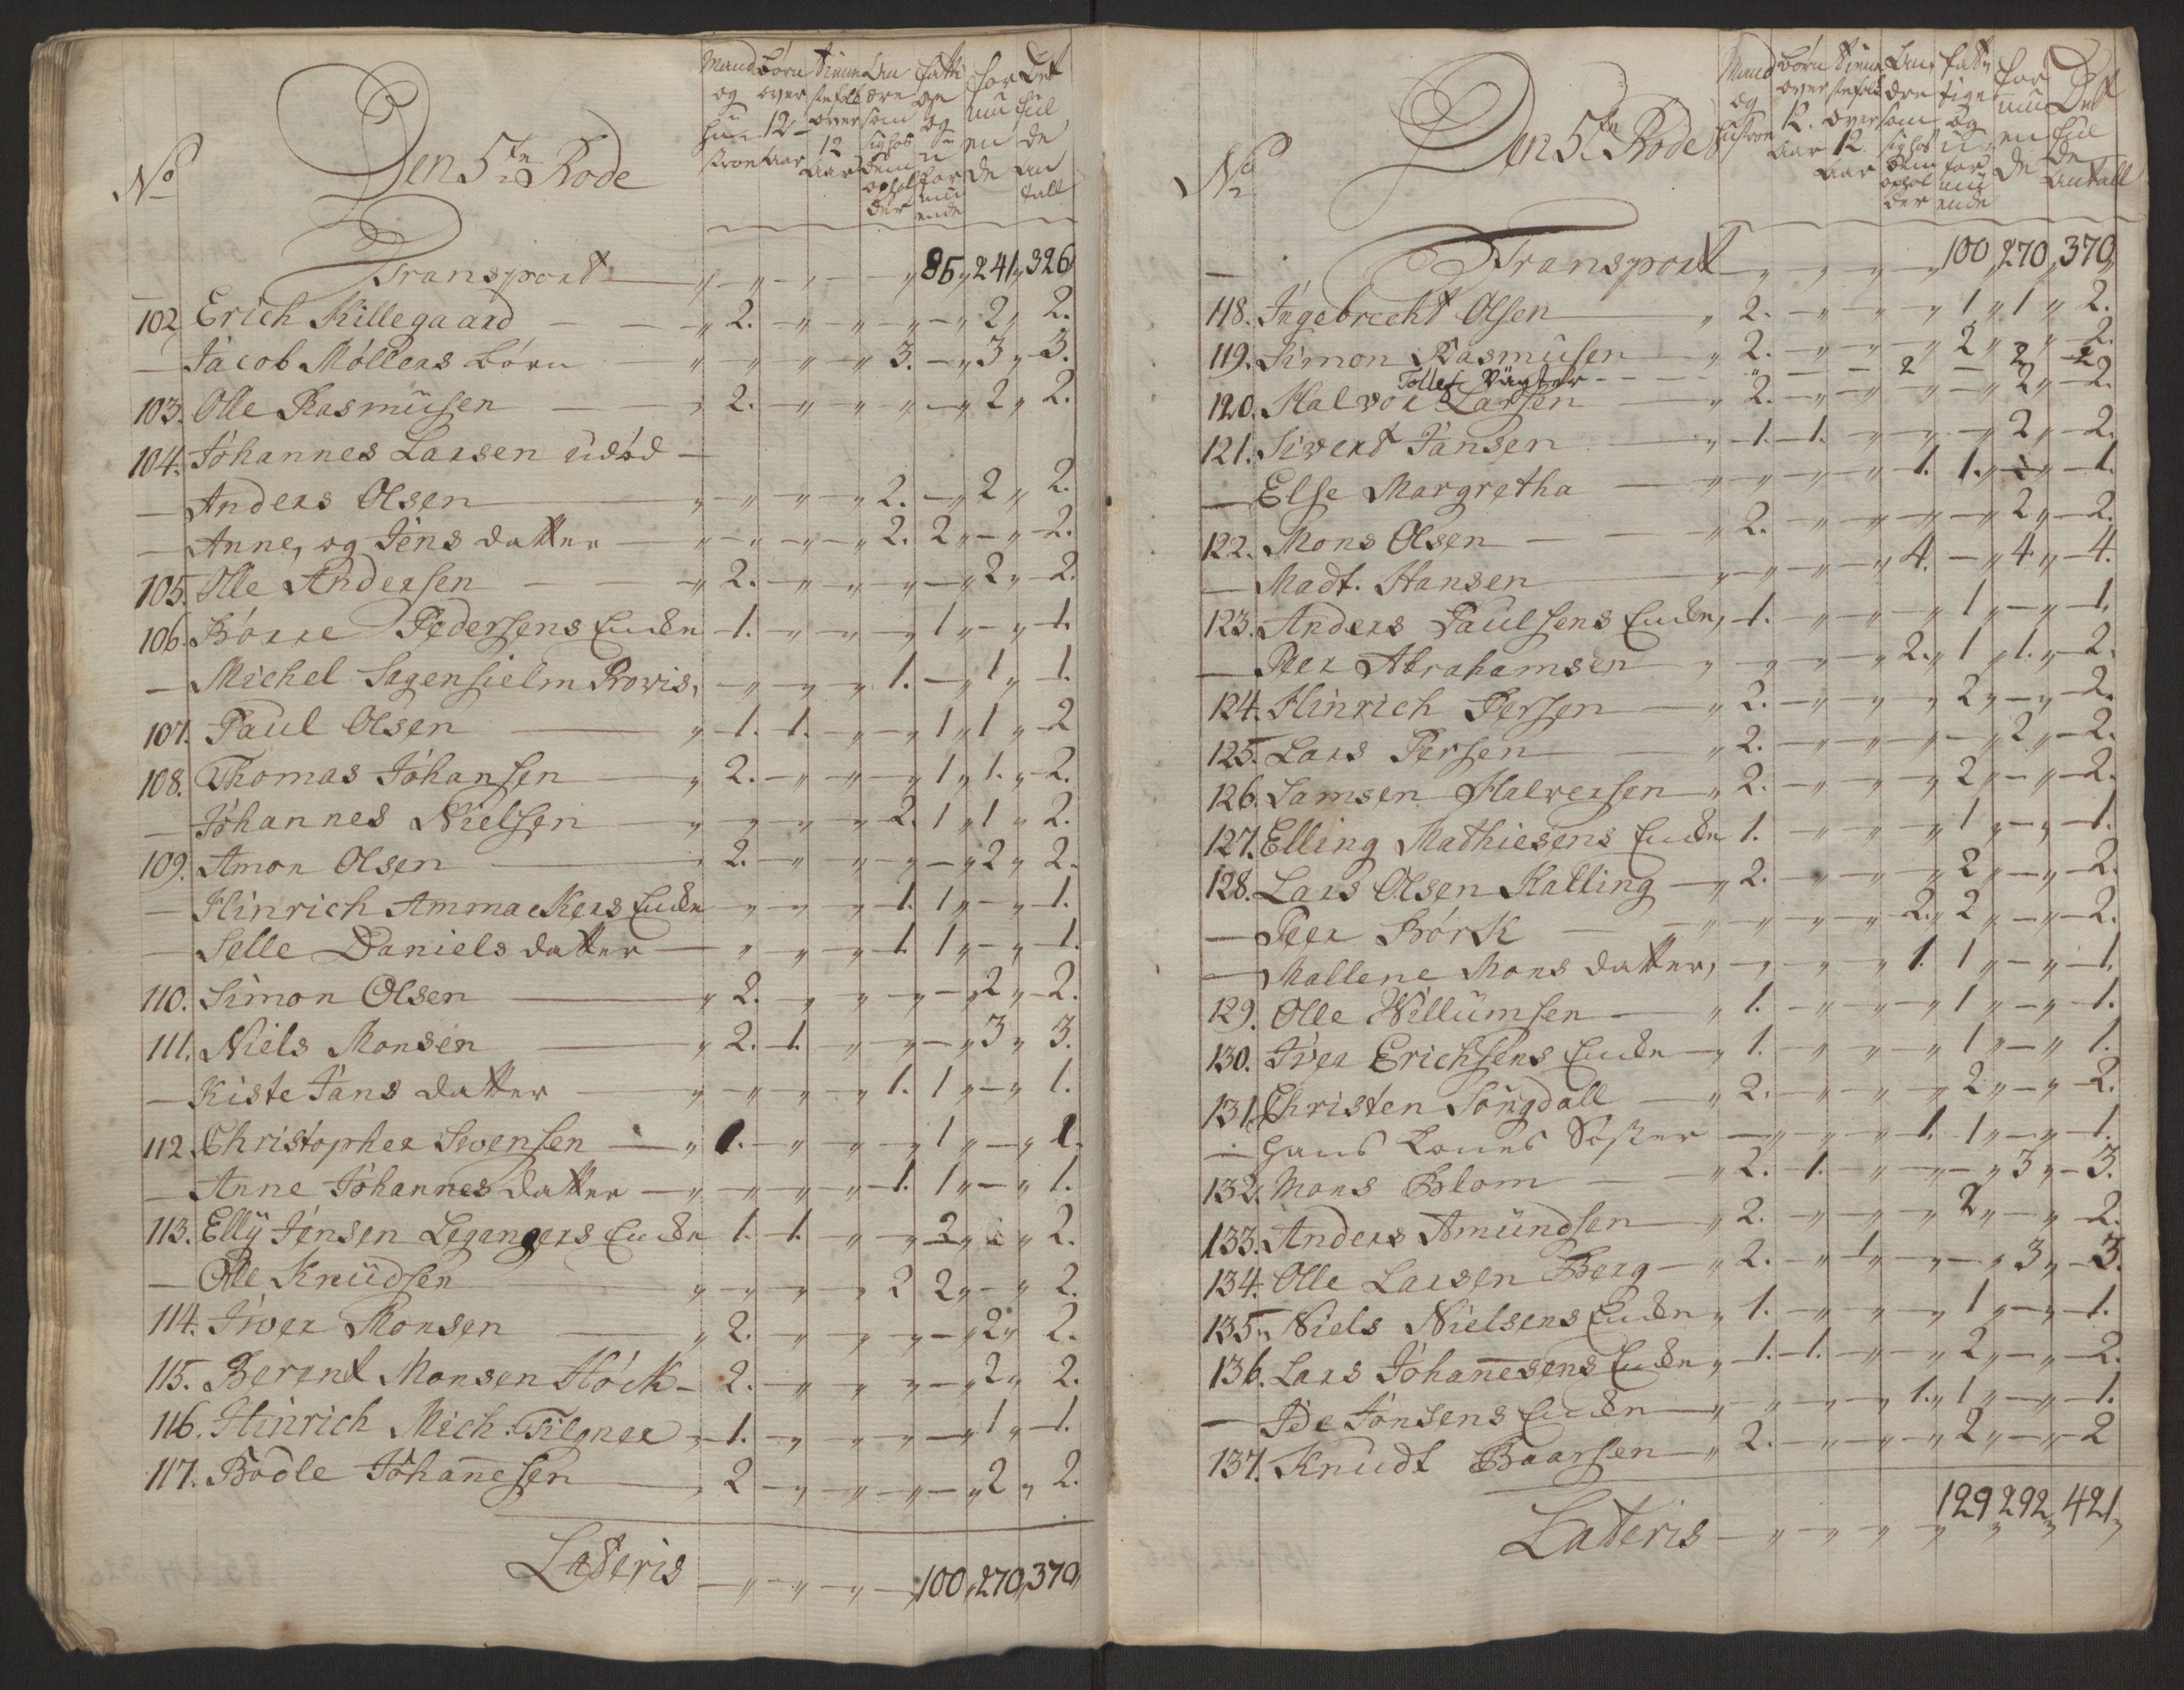 No
Den 5te Rode
Mand og Hustroe
børn over 12 Aar
tienne stefolk over 12 Aar
Andre som sig hos dem opholder
fattige og u-formuende
formuende
Det fulde Antall
Transport — „ — „ — „ — „ 85 „ 241 „ 326
102 Erich Killegaard — „ 2. — „ — „ — „ — „ 2 „ 2.
— Jacob Møllers børn „ „ „ „ 3. — „ 3 „ 3.
103. Olle Rasmusen — „ 2. — „ „ „ „ — „ 2 „ 2.
104. Johannes Larsen udød —
— Anders Olsen — „ „ „ „ 2. — „ 2 „ 2.
— Anne, og Jens datter — „ „ „ „ 2. 2 „ — „ 2.
105. Olle Andersen — „ 2. — „ „ „ „ — „ 2 „ 2.
106. Börre Pedersens Enden — 1. — „ „ „ 1 „ — „ 1.
— Michel Sagensielm Provis, — „ „ „ 1. — „ 1 „ 1.
107. Paul Olsen — „ 1. 1. — „ — „ 1 „ 1 „ 2
108. Thomas Johansen — „ 2. — „ „ „ 1 „ 1. „ 2.
— Johannes Nielsen „ „ „ „ 2. 1 „ 1 „ 2.
109. Amon Olsen — „ 2. — „ „ „ — „ 2 „ 2.
— Hinrich Ammackers Enden „ „ „ 1. 1 „ — „ 1.
— Selle Daniels datter — „ „ „ 1. 1 „ — „ 1.
110. Simon Olsen — „ 2. — „ „ „ — „ 2 „ 2.
111. Niels Monsen — „ 2. 1. „ „ — „ 3 „ 3.
— Kiste Jans datter — „ „ „ „ 1. 1 „ — „ 1.
112. Christopher Svensen — „ 1. — „ „ „ 1 „ — „ 1.
— Anne Johannes datter — „ „ „ „ 1. 1 „ — „ 1.
113. Elly Jensen Legangers Enden 1. 1. „ „ 2 „ „ 2.
— Olle Knudsen — „ „ „ „ 2 2 „ — „ 2.
114. Iver Monsen — „ 2. — „ „ „ — „ 2 „ 2.
115. Berent Monsen Höck — 2. — „ „ „ — „ 2 „ 2.
116. Hinrich Mich: Tilgner — 1. — „ „ „ — „ 1 „ 1.
117. Bodle Johannesen — „ 2 — „ „ „ — „ 2 „ 2.
Lateris — „ „ „ — 100 „ 270 „ 370 „
No
Den 5te Rode
Mand og Hustroe
børn over 12. Aar
tienne stefolk over 12. Aar
Andre som sig hos dem opholder
fattige og u-formuende
formuende
Det fulde Antall
— Transport — „ „ „ „ 100 „ 270 „ 370 „
118. Ingebrecht Olsen — „ 2. — „ „ „ 1 „ 1 „ 2.
119. Simon Rasmusen — „ 2. — „ „ „ 2 „ „ 2.
Tollef Vægter — — — „ — — 2 — 2 2
120. Halvor Larsen — „ 2. — „ „ „ — „ 2 „ 2.
121. Sivert Jansen — „ 1. 1. — „ „ — „ 2 „ 2.
— Else Margretha — „ „ „ „ 1. 1. „ „ 1.
122. Mons Olsen — „ 2. — „ „ „ — „ 2 „ 2.
— Madt. Hansen — „ „ „ „ 4. — „ 4 „ 4.
123. Anders Paulsens Enden, 1. — „ „ „ 1 „ — „ 1.
— Peer Abrahamsen „ „ „ „ 2. „ 1 „ 1. „ 2.
124. Hinrich Persen — „ 2. — „ „ „ 2 „ — „ 2.
125. Lars Persen — „ 2. — „ „ „ — „ 2 „ 2.
126. Samsen Halversen „ 2. — „ „ „ 2 „ — „ 2.
127. Elling Mathiesens Enden 1. — „ „ „ 1 „ — „ 1.
128. Lars Olsen Halling — „ 2. — „ „ „ 2 „ — „ 2.
— Peer Börk — „ „ „ „ 2. „ 2 „ — „ 2.
— Mallene Mons datter, — „ „ „ 1. 1 „ — „ 1.
129. Olle Willumsen — „ 1. — „ „ „ 1 „ — „ 1.
130. Iver Erichsens Enden — „ 1. — „ „ „ 1 „ — „ 1.
131. Christen Songdall — „ 2. — „ „ „ 2 „ — „ 2.
— Hans Søster — „ „ „ 1. 1 „ — „ 1.
132. Mons Blom — „ 2. 1. „ „ — „ 3 „ 3.
133. Anders Amundsen — „ 2. — „ „ „ 2 „ — „ 2.
134. Olle Larsen Berg — „ 2. — „ 1. „ — „ 3 „ 3.
135. Niels Nielsens Enden „ 1. — „ „ „ 1 „ — „ 1.
136. Lars Johannesens Enden „ 1. 1. „ „ 2 „ — „ 2.
— Ide Jonsens Enden — „ „ „ „ 1. „ 1 „ — „ 1.
137. Knudt Baarsen — „ 2. — „ „ „ 2 „ — „ 2
Lateris — „ „ „ „ 129 „ 292 „ 421 „